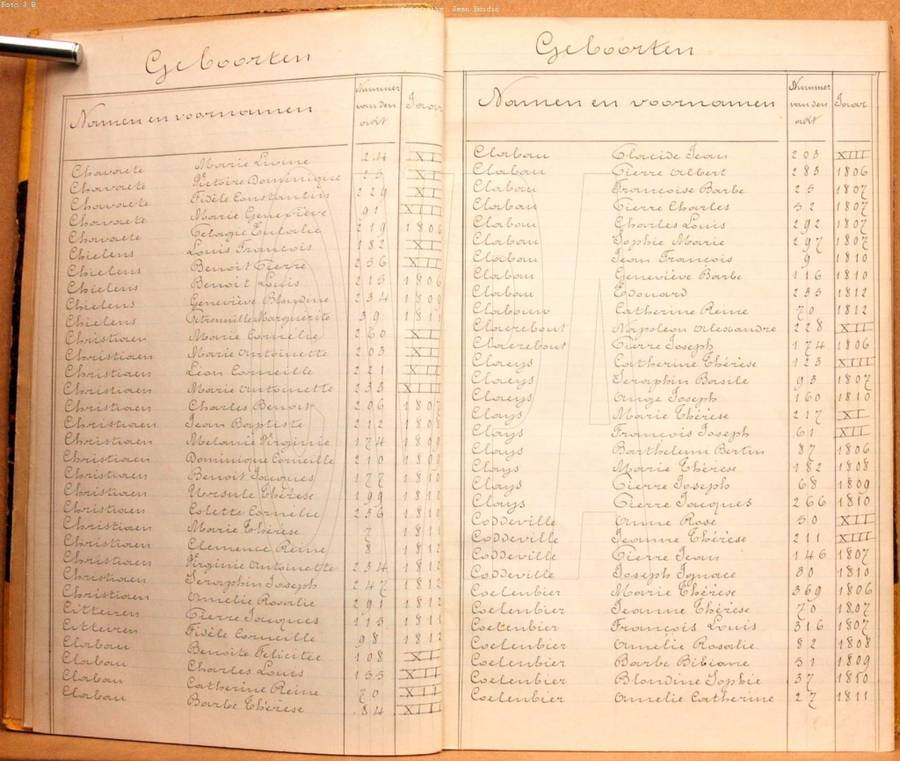 Foto J B
Jean Bendis
Geboorten
Namen en voornamen
Nummer
van den
acht
Chavaete Marie Livine 244 XI
Chavaete Dominique XI
Chavaete Fidèle Constantin 229 XI
Chavaete Marie Geneviève 91 XIII
Chavaete Pelagie Eulalie 219 1806
Chielens Louis François 182 XI
Chielens Benoit Pierre 256 XII
Chielens Benoit Louis 215 1806
Chielens Geneviève Blondine 234 1809
Chielens Petronille Marguerite 39 181
Christiaen Marie Cornélie 260 XI
Christiaen Marie Antoinette 203 XI
Christiaen Léon Corneille 221 XII
Christiaen Marie Antoinette 233 XIII
Christiaen Charles Benoit 206 1807
Christiaen Jean Baptiste 212 1808
Christiaen Melanie Virginie 174 1809
Christiaen Dominique Corneille 210 1809
Christiaen Benoit Jacques 177 1810
Christiaen Ursule Thérèse 199 1810
Christiaen Colette Cornélie 236 1810
Christiaen Marie Thérèse 7 1811
Christiaen Clemence Reine 8 1812
Christiaen Virginie Antoinette 234 1812
Christiaen Seraphin Joseph 247 1812
Christiaen Amelie Rosalie 291 1812
Citteiren Pierre Jacques 113 1811
Citteiren Fidèle Corneille 98 1812
Clabau Benoite Felicitée 108 XI
Clabau Charles Louis 155 XII
Clabau Catherine Reine 70 XII
Clabau Barbe Thérèse 34 XIII
Geboorten
Namen en voornamen
Nummer
van den
acht
Jaar
Clabau Placide Jean 203 XIII
Clabau Pierre Albert 283 1806
Clabau Françoise Barbe 25 1807
Clabau Pierre Charles 52 1807
Clabau Charles Louis 292 1807
Clabau Sophie Marie 297 1807
Clabau Jean François 9 1810
Clabau Geneviève Barbe 116 1810
Clabau Edouard 235 1812
Clabauw Catherine Reine 70 1812
Claerebout Napoleon Alexandre 228 XII
Claerebout Pierre Joseph 174 1806
Claeys Catherine Thérèse 123 XIII
Claeys Seraphin Basile 93 1807
Claeys Ange Joseph 160 1810
Clays Marie Thérèse 217 XI
Clays François Joseph 61 XII
Clays Barthelemi Bertin 87 1806
Clays Marie Thérèse 182 1808
Clays Pierre Joseph 68 1809
Clays Pierre Jacques 266 1810
Coddeville Anne Rose 50 XII
Coddeville Jeanne Thérèse 211 XIII
Coddeville Pierre Jean 146 1807
Coddeville Joseph Ignace 30 1810
Coelenbier Marie Thérèse 369 1806
Coelenbier Jeanne Thérèse 70 1807
Coelenbier François Louis 316 1807
Coelenbier Amélie Rosalie 82 1808
Coelenbier Barbe Bibiane 31 1809
Coelenbier Blondine Sophie 37 1810
Coelenbier Amelie Catherine 27 1811